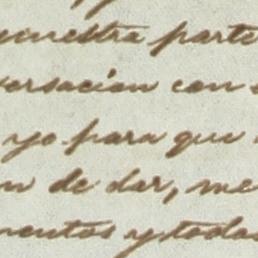 nuestra parte
versacion con
yo para que
n de dar, me
mentos y todas